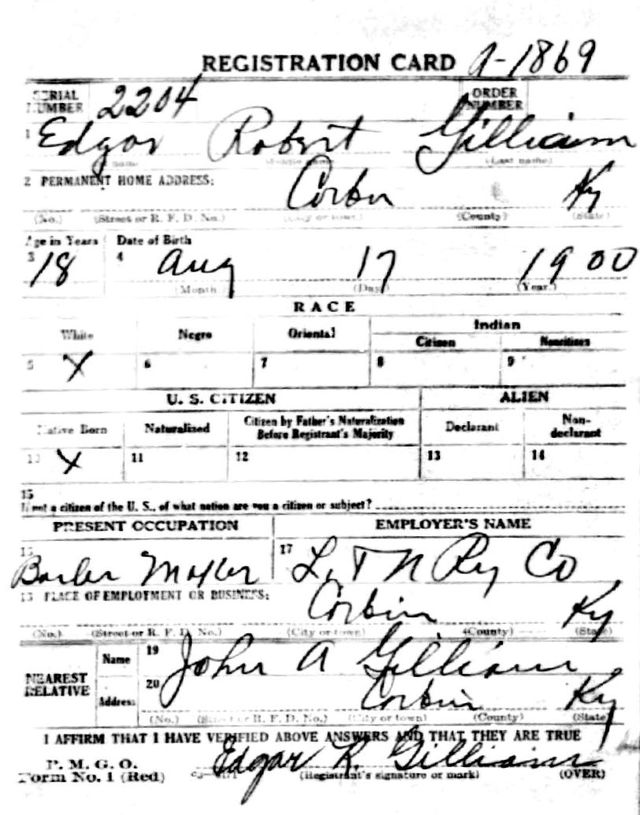 REGISTRATION CARD A-1869
SERIAL NUMBER 2204 ORDER NUMBER
1 Edgar Robert Gilliam
(Middle name) (Last name)
2 PERMANENT HOME ADDRESS: Corbin Ky
(No.) (Street or R. F. D. No.) (City or town) (County) (State)
Age in Years Date of Birth
3 18 4 Aug 17 1900
(Month) (Day) (Year.)
RACE
White Negro Oriental Indian
Citizen Noncitizen
5 X 6 7 8 9
U. S. CITIZEN ALIEN
Native Born Naturalized Citizen by Father's Naturalization Before Registrant's Majority Declarant Non-declarant
10 X 11 12 13 14
15
If not a citizen of the U. S., of what nation are you a citizen or subject?
PRESENT OCCUPATION EMPLOYER'S NAME
16 17 L. & N Ry Co
18 PLACE OF EMPLOYMENT OR BUSINESS:
Corbin Ky
(No.) (Street or R. F. D. No.) (City or town) (County) (State)
NEAREST RELATIVE Name 19 John A Gilliam
Address 20 Corbin Ky
(No.) (Street or R. F. D. No.) (City or town) (County) (State)
I AFFIRM THAT I HAVE VERIFIED ABOVE ANSWERS AND THAT THEY ARE TRUE
P. M. G. O.
Form No. 1 (Red) Edgar R. Gilliam
(Registrant's signature or mark) (OVER)